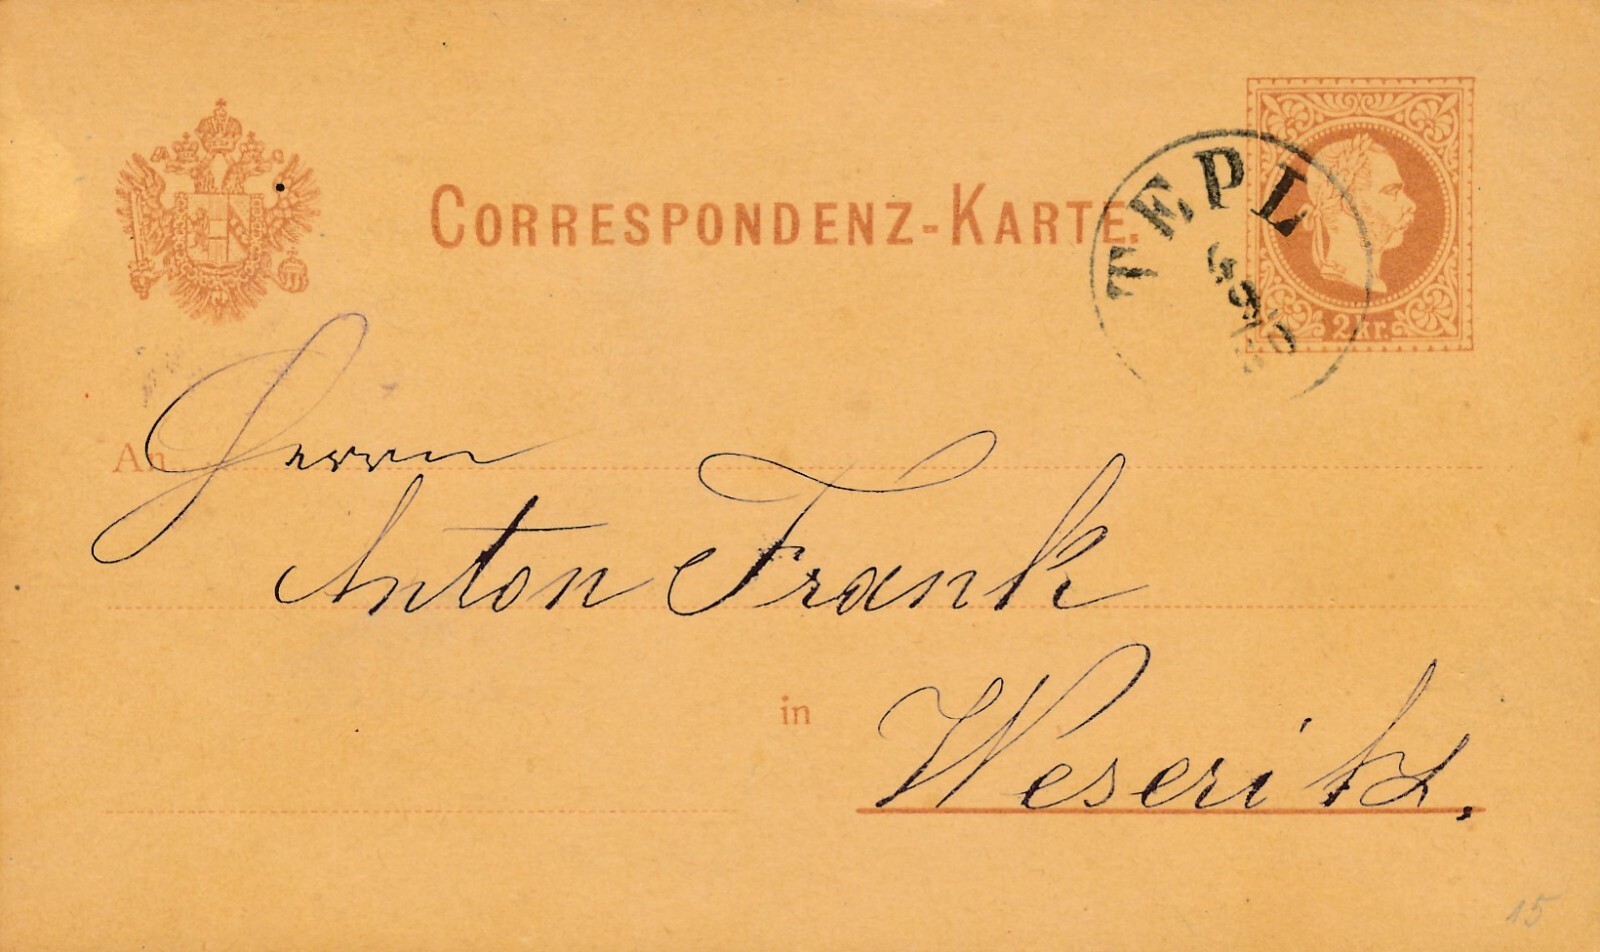 CORRESPONDENZ-KARTE.
TEPL
2 kr.
An Herrn
Anton Frank
in Weseritz.
15